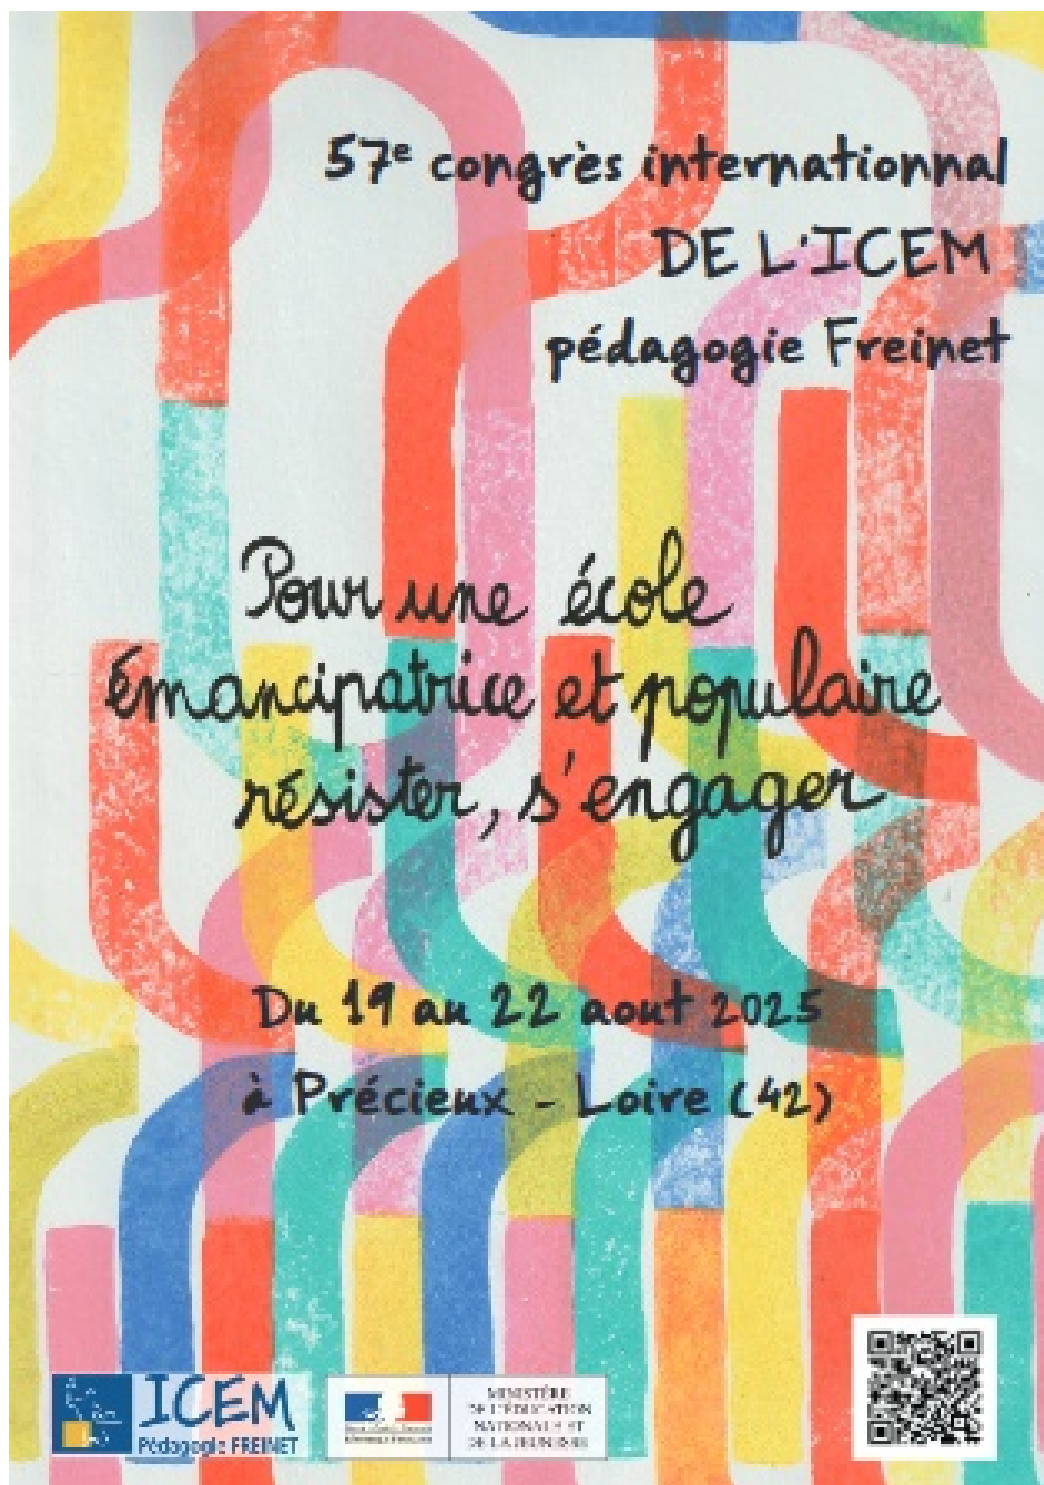 57e congrès internationnal
DE L'ICEM
pédagogie Freinet
Pour une école
émancipatrice et populaire
résister, s'engager
Du 19 au 22 aout 2025
à Précieux - Loire (42)
ICEM
Pédagogie FREINET
MINISTÈRE
DE L'ÉDUCATION
NATIONALE ET
DE LA JEUNESSE